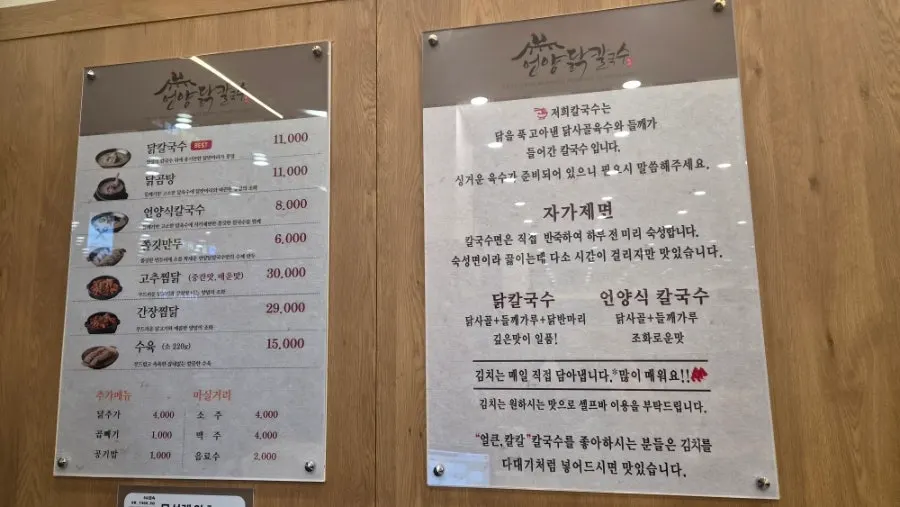 언양닭칼국수
닭칼국수 BEST 11,000
닭곰탕 11,000
언양식칼국수 8,000
쫄깃만두 6,000
고추찜닭 (중간맛,매운맛) 30,000
간장찜닭 29,000
수육 (소 220g) 15,000
추가메뉴 마실거리
닭추가 4,000 소 주 4,000
곱빼기 1,000 맥 주 4,000
공기밥 1,000 음료수 2,000
언양닭칼국수
저희칼국수는
닭을 푹 고아낸 닭사골육수와 들깨가
들어간 칼국수 입니다.
싱거운 육수가 준비되어 있으니 필요시 말씀해주세요.
자가제면
칼국수면은 직접 반죽하여 하루 전 미리 숙성합니다.
숙성면이라 끓이는데 다소 시간이 걸리지만 맛있습니다.
닭칼국수 언양식 칼국수
닭사골+들깨가루+닭반마리 닭사골+들깨가루
깊은맛이 일품! 조화로운맛
김치는 매일 직접 담아냅니다.*많이 매워요!!
김치는 원하시는 맛으로 셀프바 이용을 부탁드립니다.
"얼큰,칼칼"칼국수를 좋아하시는 분들은 김치를
다대기처럼 넣어드시면 맛있습니다.